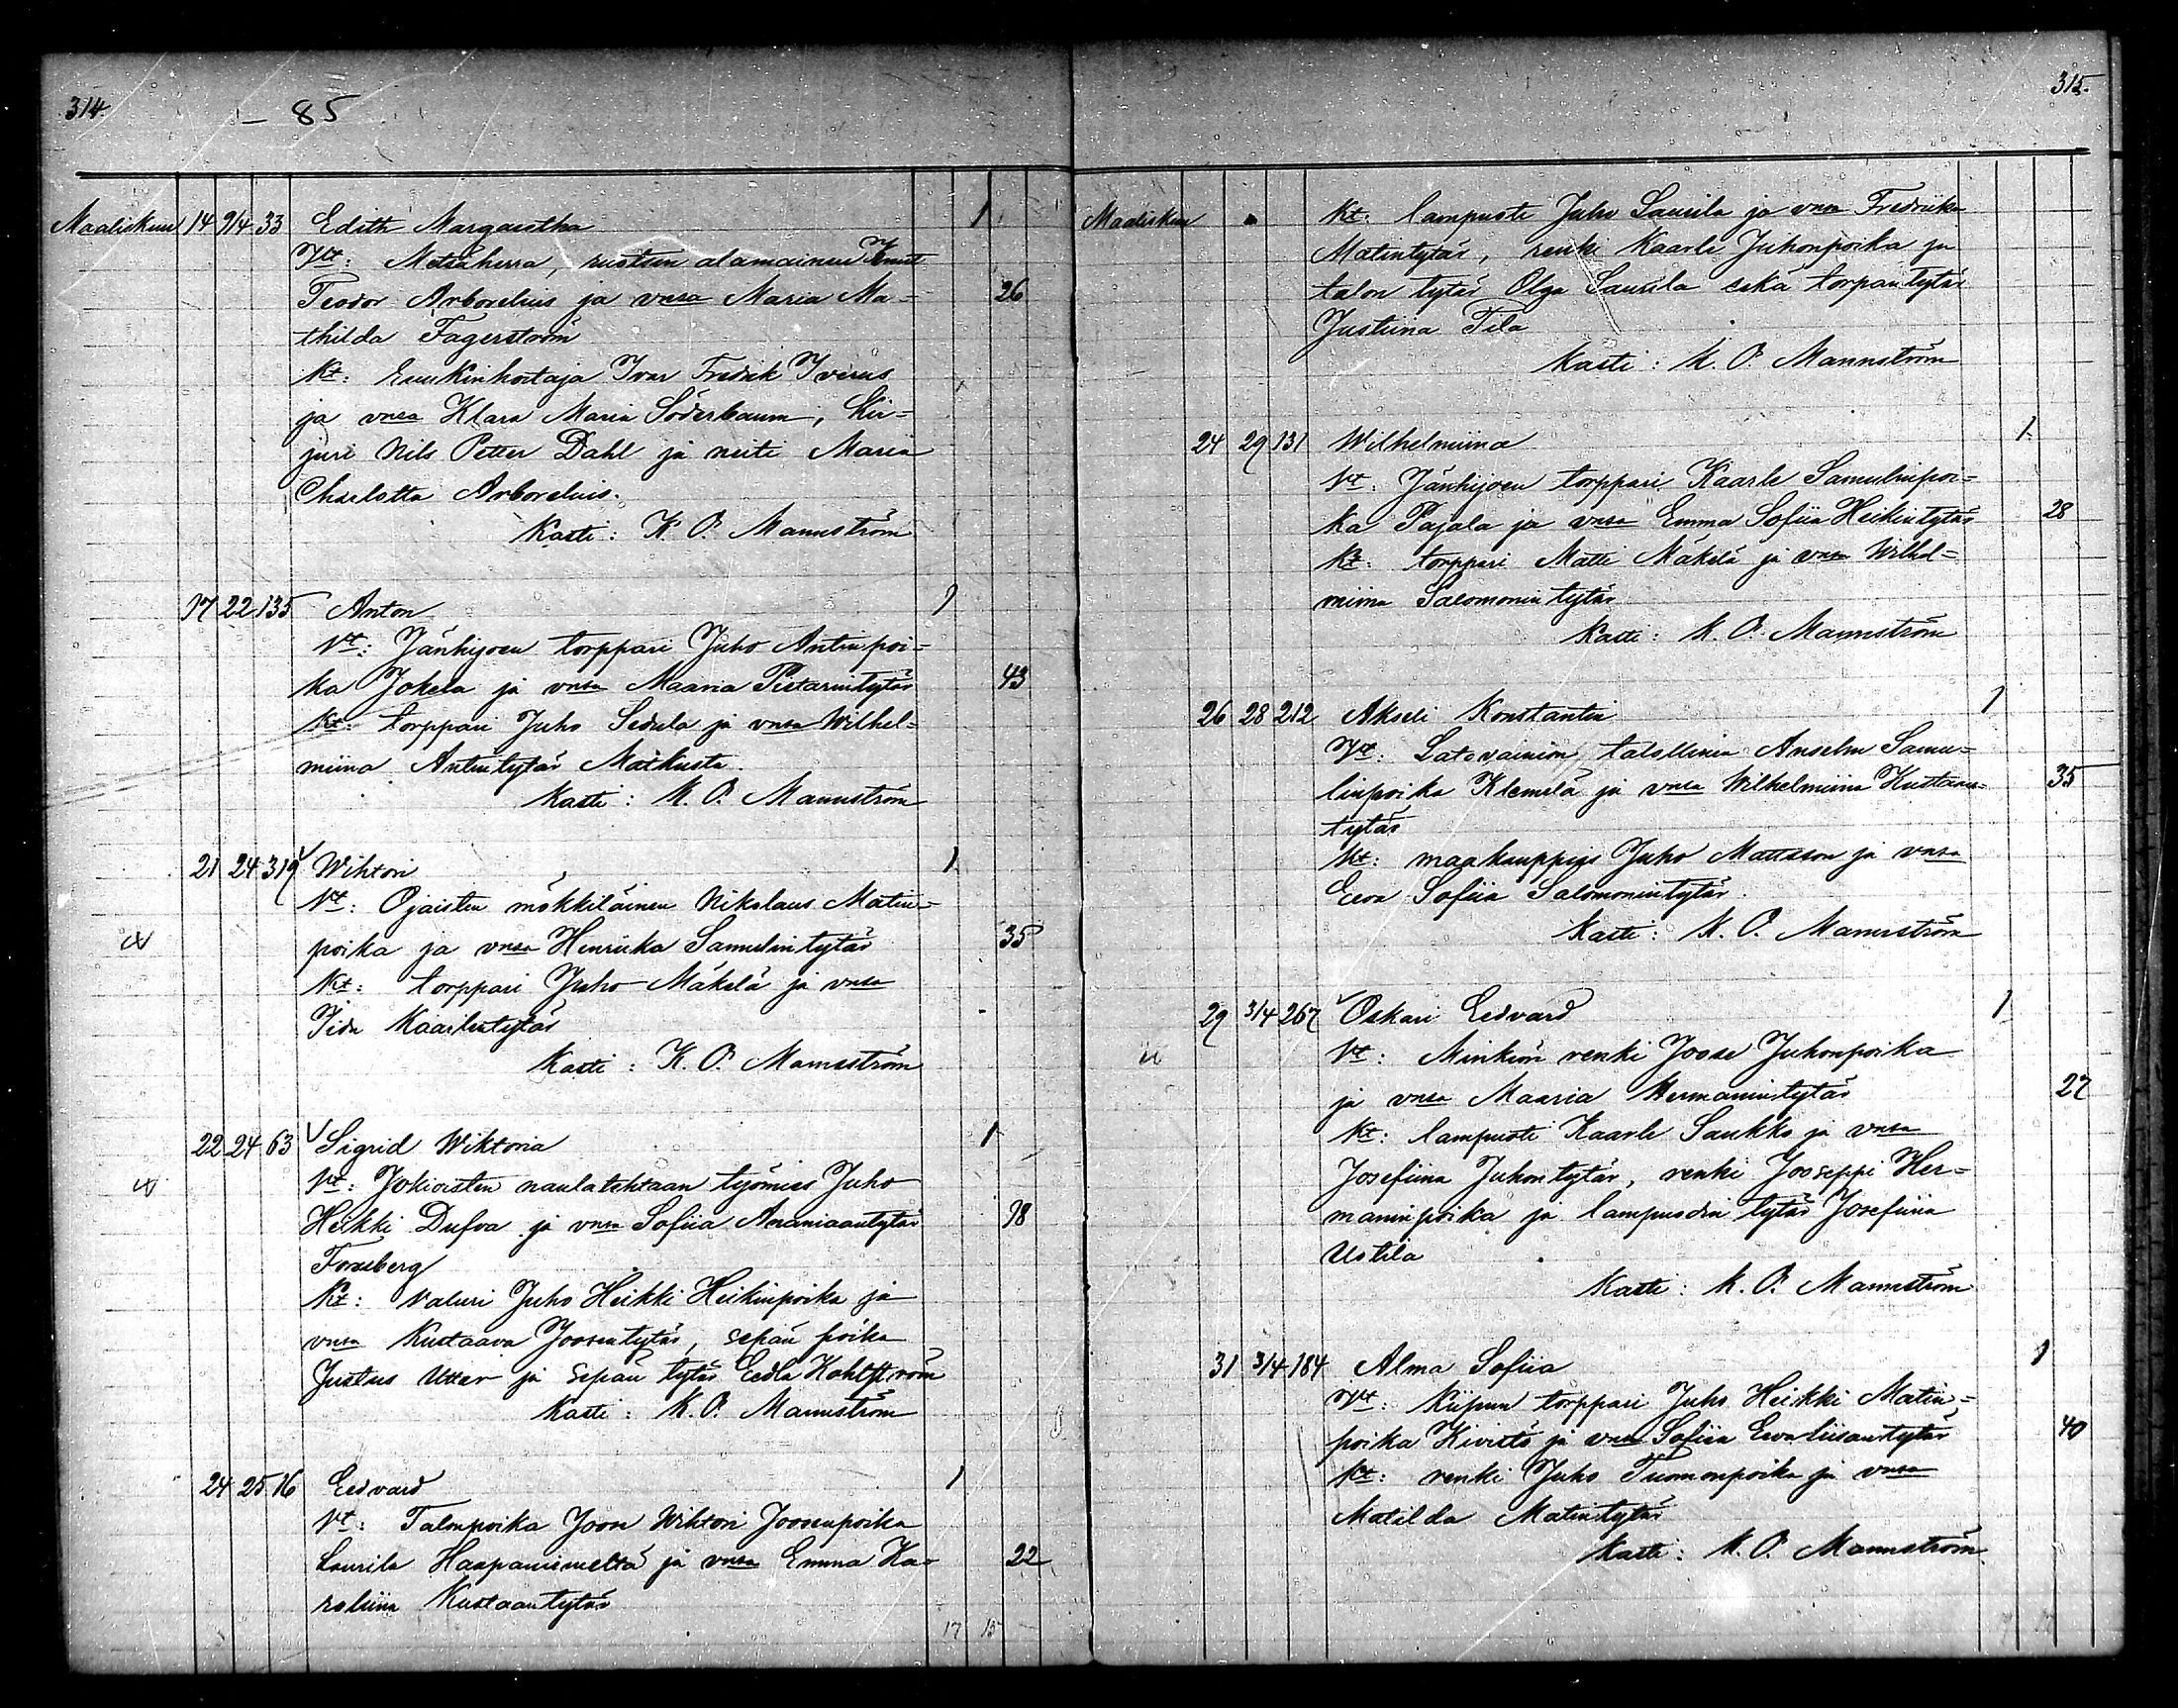 314.
– 85
Maaliskuu 14 9/4 33 Edith Margaretha 1
Vt: Metsäherra, ruotsin alamainen Ernst
Teodor Arborelius ja vmsa Maria Ma= 26
thilda Fagerström
Kt: Ivar Fredrik Iverus
ja vmsa Klara Maria Söderbaum, Kir=
juri Nils Petter Dahl ja neiti Maria
Charlotta Arborelius.
Kasti: K. O. Mannström
17 22 135 Anton 1
Vt: Jänhijoen torppari Juho Antinpoi=
ka Jokela ja vmsa Maaria Pietarintytär 43
Kt: torppari Juho Sedula ja vmsa Wilhel=
miina Antintytär Matkusta.
Kasti: K. O. Mannström
21 24 319 Wihtori 1
Vt: Ojaisten mökkiläinen Nikolaus Matin=
poika ja vmsa Henrieka Samulintytär 35
Kt: torppari Juho Mäkelä ja vmsa
Iida Kaarlentytär
Kasti: K. O. Mannström
22 24 63 Sigrid Wiktoria 1
Vt: Jokioisten naulatehtaan työmies Juho
Heikki Dufva ja vmsa Sofiia Ananiaantytär 38
Forsberg
Kt: Valuri Juho Heikki Heikinpoika ja
vmsa Kustaava Joosentytär, sepän poika
Justus Utter ja sepän tytär Eedla Kohlström
Kasti: K. O. Mannström
24 25 16 Eedvard 1
Vt: Talonpoika Joon Wihtori Joosenpoika
Laurila Haapaniemeltä ja vmsa Emma Ka= 22
roliina Kustaantytär
17 15
315.
Maaliskuu
Kt: lampuoti Juho Laurila ja vmsa Fredriika
Matintytär, renki Kaarle Juhonpoika ja
talon tytär Olga Laurila sekä torpantytär
Justiina Tila
Kasti: K. O. Mannström
24 29 131 Wilhelmiina 1
Vt: Jänhijoen torppari Kaarle Samulinpoi=
ka Pajala ja vmsa Emma Sofiia Heikintytär 28
Kt: torppari Matti Mäkelä ja vmsa Wilhel=
miina Salomonin tytär
Kasti: K. O. Mannström
26 28 212 Akseli Konstantin 1
Vt: Latovainion talollinen Anselm Samu=
linpoika Klemelä ja vmsa Wilhelmiina Kustaan= 35
tytär
Kt: maakauppias Juho Mattsson ja vmsa
Eeva Sofiia Salomonintytär.
Kasti: K. O. Mannström
29 3/4 267 Oskari Eedvard 1
Vt: Minkiön renki Joose Juhonpoika
ja vmsa Maaria Hermanintytär 27
Kt: lampuoti Kaarle Saukko ja vmsa
Josefiina Juhontytär, renki Jooseppi Her=
maninpoika ja lampuodin tytär Josefiina
Uotila
Kasti: K. O. Mannström
31 3/4 184 Alma Sofiia 1
Vt: Kiipun torppari Juho Heikki Matin=
poika Kivistö ja vmsa Sofiia Eevaliisantytär 40
Kt: renki Juho Tuomonpoika ja vmsa
Matilda Matintytär
Kasti: K. O. Mannström.